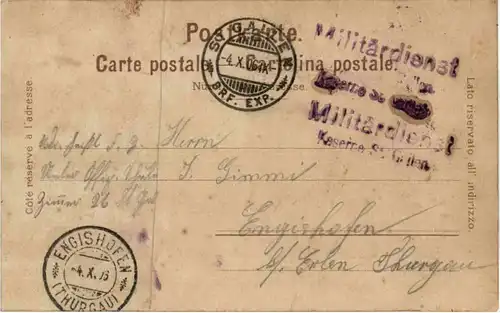 Postkarte.
Carte postale. Cartolina postale.
Nur
esse.
Côté réservé à l'adresse
Lato riservato all'indirizzo.
ST. GALLEN
4.X.
BRF. EXP.
Militärdienst
Kaserne St. Gallen.
Militärdienst
Kaserne St. Gallen.
Herrn
J. Gimmi
Engishofen
b/ Erlen Thurgau
Zimmer 26 St. Gal
ENGISHOFEN
4.X.
(THURGAU)